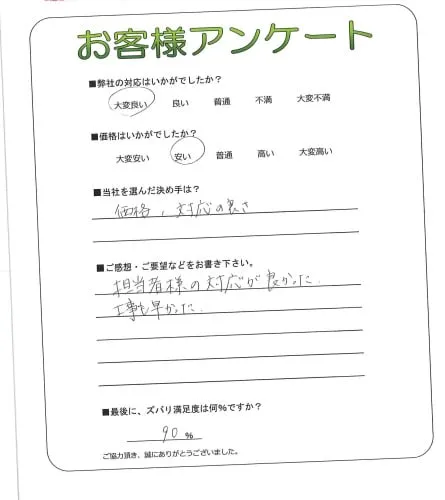 お客様アンケート
■弊社の対応はいかがでしたか？
大変良い 良い 普通 不満 大変不満
■価格はいかがでしたか？
大変安い 安い 普通 高い 大変高い
■当社を選んだ決め手は？
価格，対応の良さ
■ご感想・ご要望などをお書き下さい。
担当者様の対応が良かった.
工事も早かった.
■最後に、ズバリ満足度は何％ですか？
90 %
ご協力頂き、誠にありがとうございました。